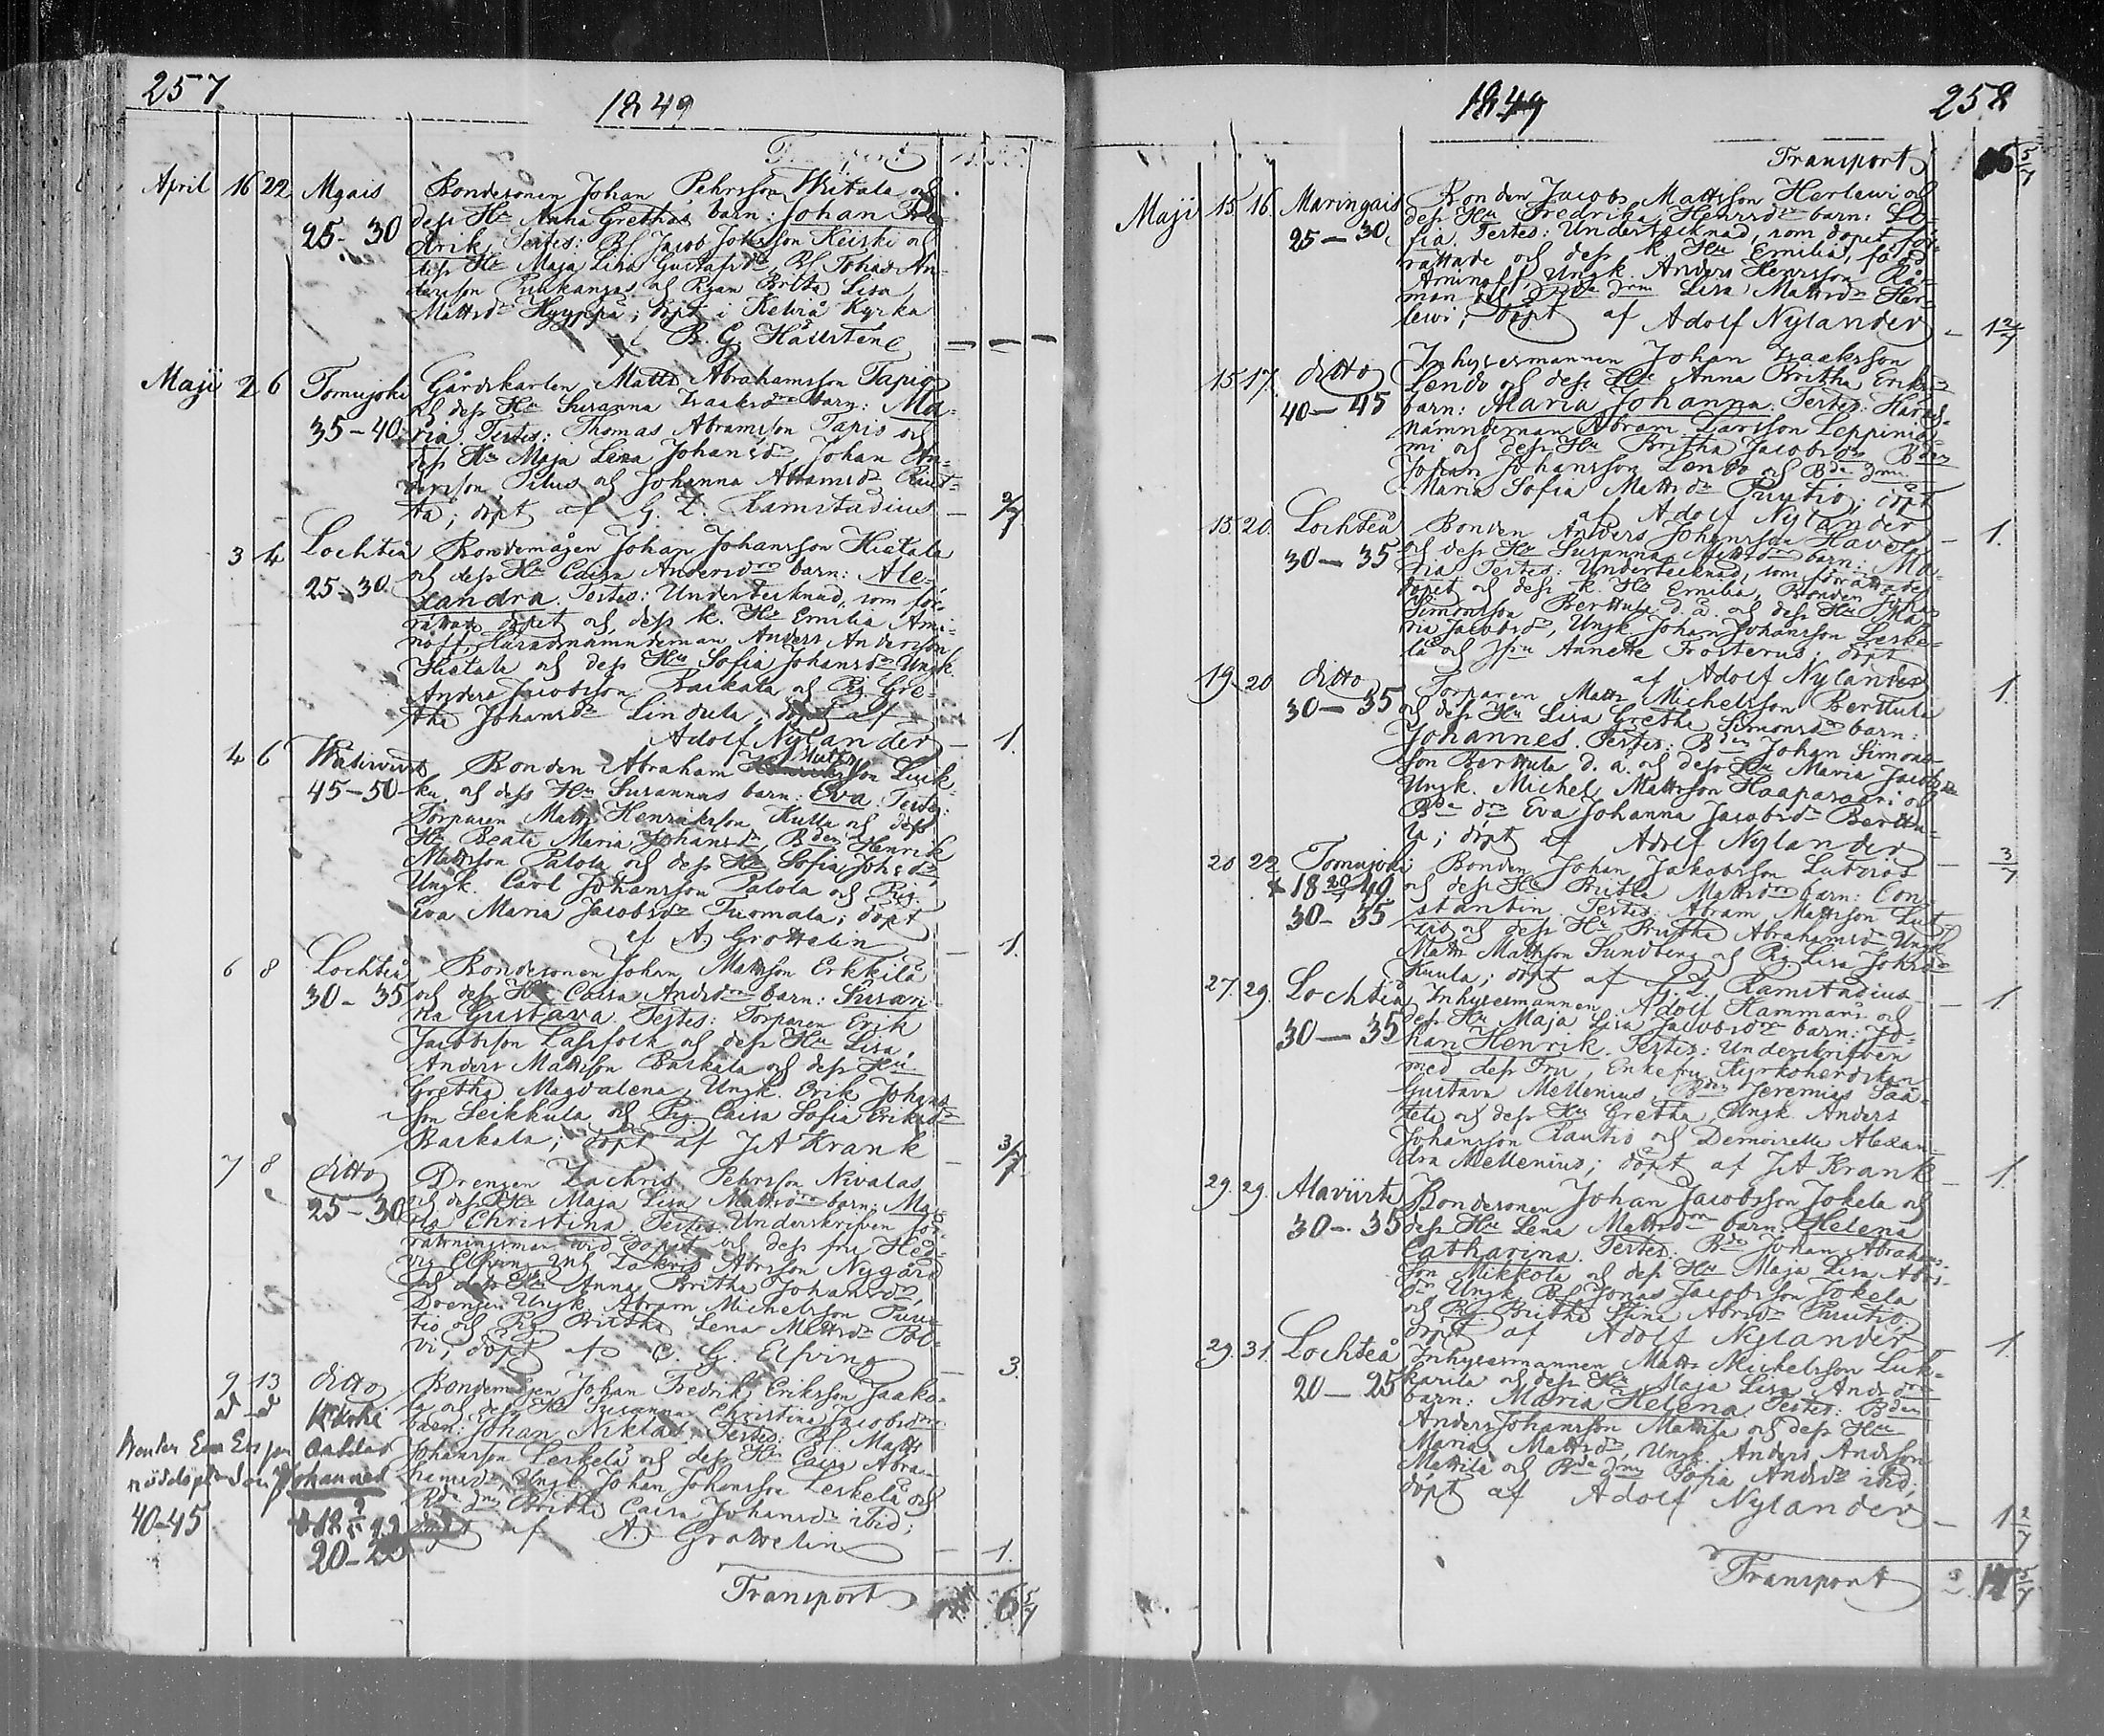 257
1849
Transport
April 16 22 Mgais Bondesonen Johan Pehrsson Witala och
25-30 dess Hu Anna Grethas barn: Johan Fre-
drik. Testes: Bs Jacob Johnsson Keiski och
dess Hu Maja Lisa Gustafsdr, Bs Johan An-
dersson Puukangas och Pigan Brita Lisa
Mattsdr Hyyppä; döpt i Kelviå Kyrka
B. G. Hällsten
Maji 2 6 Tomujoki Gårdskarlen Matts Abrahamsson Tapio
och dess Hu Susanna Isaaksdrs barn: Ma-
35-40 ria. Testes: Thomas Abramsson Tapio och
dess Hu Maja Lena Johansdr, Johan An-
dersson Pitus och Johanna Abramsdr Raut-
ta; döpt af G. L. Ramstadius 2/7
3 4 Lochteå Bondemågen Johan Johansson Hietala
och dess Hu Caisa Andersdrs barn: Ale-
25-30. xandra. Testes: Undertecknad, som för-
rättat dopet och dess k. Hu Emilia Ami-
noff, Häradsnämndeman Anders Andersson
Hietala och dess Hu Sofia Johansdr, Ungk.
Anders Jacobsson Barkala och Pig. Gre-
tha Johansdr Lindula; döpt af
Adolf Nylander 1.
4 6 Bonden Abraham Matts son Luk-
45-50 ka och dess Hu Susannas barn: Eva. Testes:
Torparen Matts Henriksson Kulla och dess
Hu Beata Maria Johansdr, Bden Henrik
Mattsson Palola och dess Hu Sofia Johsdr,
Ungk. Carl Johansson Palola och Pig.
Eva Maria Jacobsdr Tuomala; döpt
af A. Grottelin 1.
6 8 Lochteå Bondesonen Johan Mattsson Erkkilä
30-35 och dess Hu Caisa Andrsdrs barn: Susan-
na Gustava. Testes: Torparen Erik
Jacobsson Lassfolk och dess Hu Lisa,
Anders Mattsson Barkala och dess Hu
Gretha Magdalena, Ungk. Erik Johans-
son Leikkula och Pig. Caisa Sofia Eriksdr
Barkala; döpt af J A Krank 3/7
7 8 ditto Drengen Zachris Pehrsson Nivalas
och dess Hu Maja Lisa Mattsdrs barn: Ma-
25-30 ria Christina. Testes: Underskrifven för-
rättningsman vid dopet och dess fru Hed-
vig Elfving, Zakris Abrsson Nygård
och dess Hu Anna Britha Johansdr,
Drengen Ungk. Abram Michelsson Puu-
tio och Pig. Britha Lena Mattsdr Pol-
vi; döpt af C. G. Elfving 3.
9 13 ditto Bondemågen Johan Fredrik Eriksson Jaako-
la och dess Hu Susanna Christina Jacobsdrs
barn: Johan Niklas. Testes: Bs. Matts
Johansson Leskelä och dess Hu Caisa Abra-
hamsdr, Ungk. Johan Johansson Leskelä och
Bde dms Britha Caisa Johansdr ibid;
döpt af A. Grottelin 1.
Johannes
40-45
20-25
Transport 6 5/7
1849
258
Transport 6 5/7
Maji 15 16 Maringais Bonden Jacob Mattsson Herlewi och
25-30 dess Hu Fredrika Henrsdrs barn: So-
fia. Testes: Undertecknad, som dopet för-
rättade och dess k. Hu Emilia, född
Aminoff, Ungk. Anders Henrsson Rå-
man och Bde dms Lisa Mattsdr Her-
lewi; döpt af Adolf Nylander 1 2/7
15 17. ditto Inhysesmannen Johan Isaaksson
Lendo och dess Hu Anna Britha Eriksdrs
40-45 barn: Maria Johanna. Testes: Härads-
nämndeman Abram Larsson Leppinie-
mi och dess Hu Britha Jacobsdr, Bden
Johan Johansson Lendo och Bde dms
Maria Sofia Mattsdr Puutio; döpt
af Adolf Nylander 1.
15 20. Lochteå Bonden Anders Johansson Havela
30-35 och dess Hu Susanna Mattsdrs barn: Ma-
ria. Testes: Undertecknad, som förrättade
dopet och dess k. Hu Emilia, Bonden Johan
Simonsson Berttula d. ä. och dess Hu Ma-
ria Jacobsdr, Ungk. Johan Johansson Leske-
lä och Jfru Annette Frosterus; döpt
af Adolf Nylander 1.
19 20 ditto Torparen Matts Michelsson Berttula
30-35 och dess Hu Lisa Gretha Simonsdrs barn:
Johannes. Testes: Bden Johan Simons-
son Berttula d. ä. och dess Hu Maria Jacobsdr
Ungk. Michel Mattsson Haapasaari och
Bde dms Eva Johanna Jacobsdr Berttu-
la; döpt af Adolf Nylander 3/7
20 22 Tomujoki Bonden Johan Jakobsson Lutzios
och dess Hu Britha Mattsdrs barn: Con-
30-35 stantin. Testes: Abram Mattsson Lut-
zio och dess Hu Britha Abrahamsdr, Ungk.
Matts Mattsson Sundberg och Pig. Lisa Johsdr
Kuula; döpt af G. L. Ramstadius 1.
27. 29. Lochteå Inhysesmannen Adolf Hammars och
dess Hu Maja Lisa Jacobsdrs barn: Jo-
30-35 han Henrik. Testes: Underskrifven
med dess Fru, Enkefru Kyrkoherdskan
Gustava Mellenius, Bden Jeremias Pää-
telä och dess Hu Gretha, Ungk. Anders
Johansson Rautio och Demoiselle Alexan-
dra Mellenius; döpt af J A Krank 1.
29. 29. Alaviirte Bondesonen Johan Jacobsson Jokela och
30-35 dess Hu Lena Mattsdrs barn Helena
Catharina. Testes: Bden Johan Abrahams-
son Mikkola och dess Hu Maja Lisa Abrs-
dr, Ungk. Bs Jonas Jacobsson Jokela
och Pig. Britha Stina Abrsdr Puutio;
döpt af Adolf Nylander 1.
29. 31. Lochteå Inhysesmannen Matts Michelsson Luk-
karila och dess Hu Maja Lisa Andsdrs
20-25 barn: Maria Helena. Testes: Bden
Anders Johansson Mattila och dess Hu
Maria Mattsdr, Ungk. Anders Andsson
Mattila och Bde dms Sofia Andsdr ibid;
döpt af Adolf Nylander 1 2/7
Transport